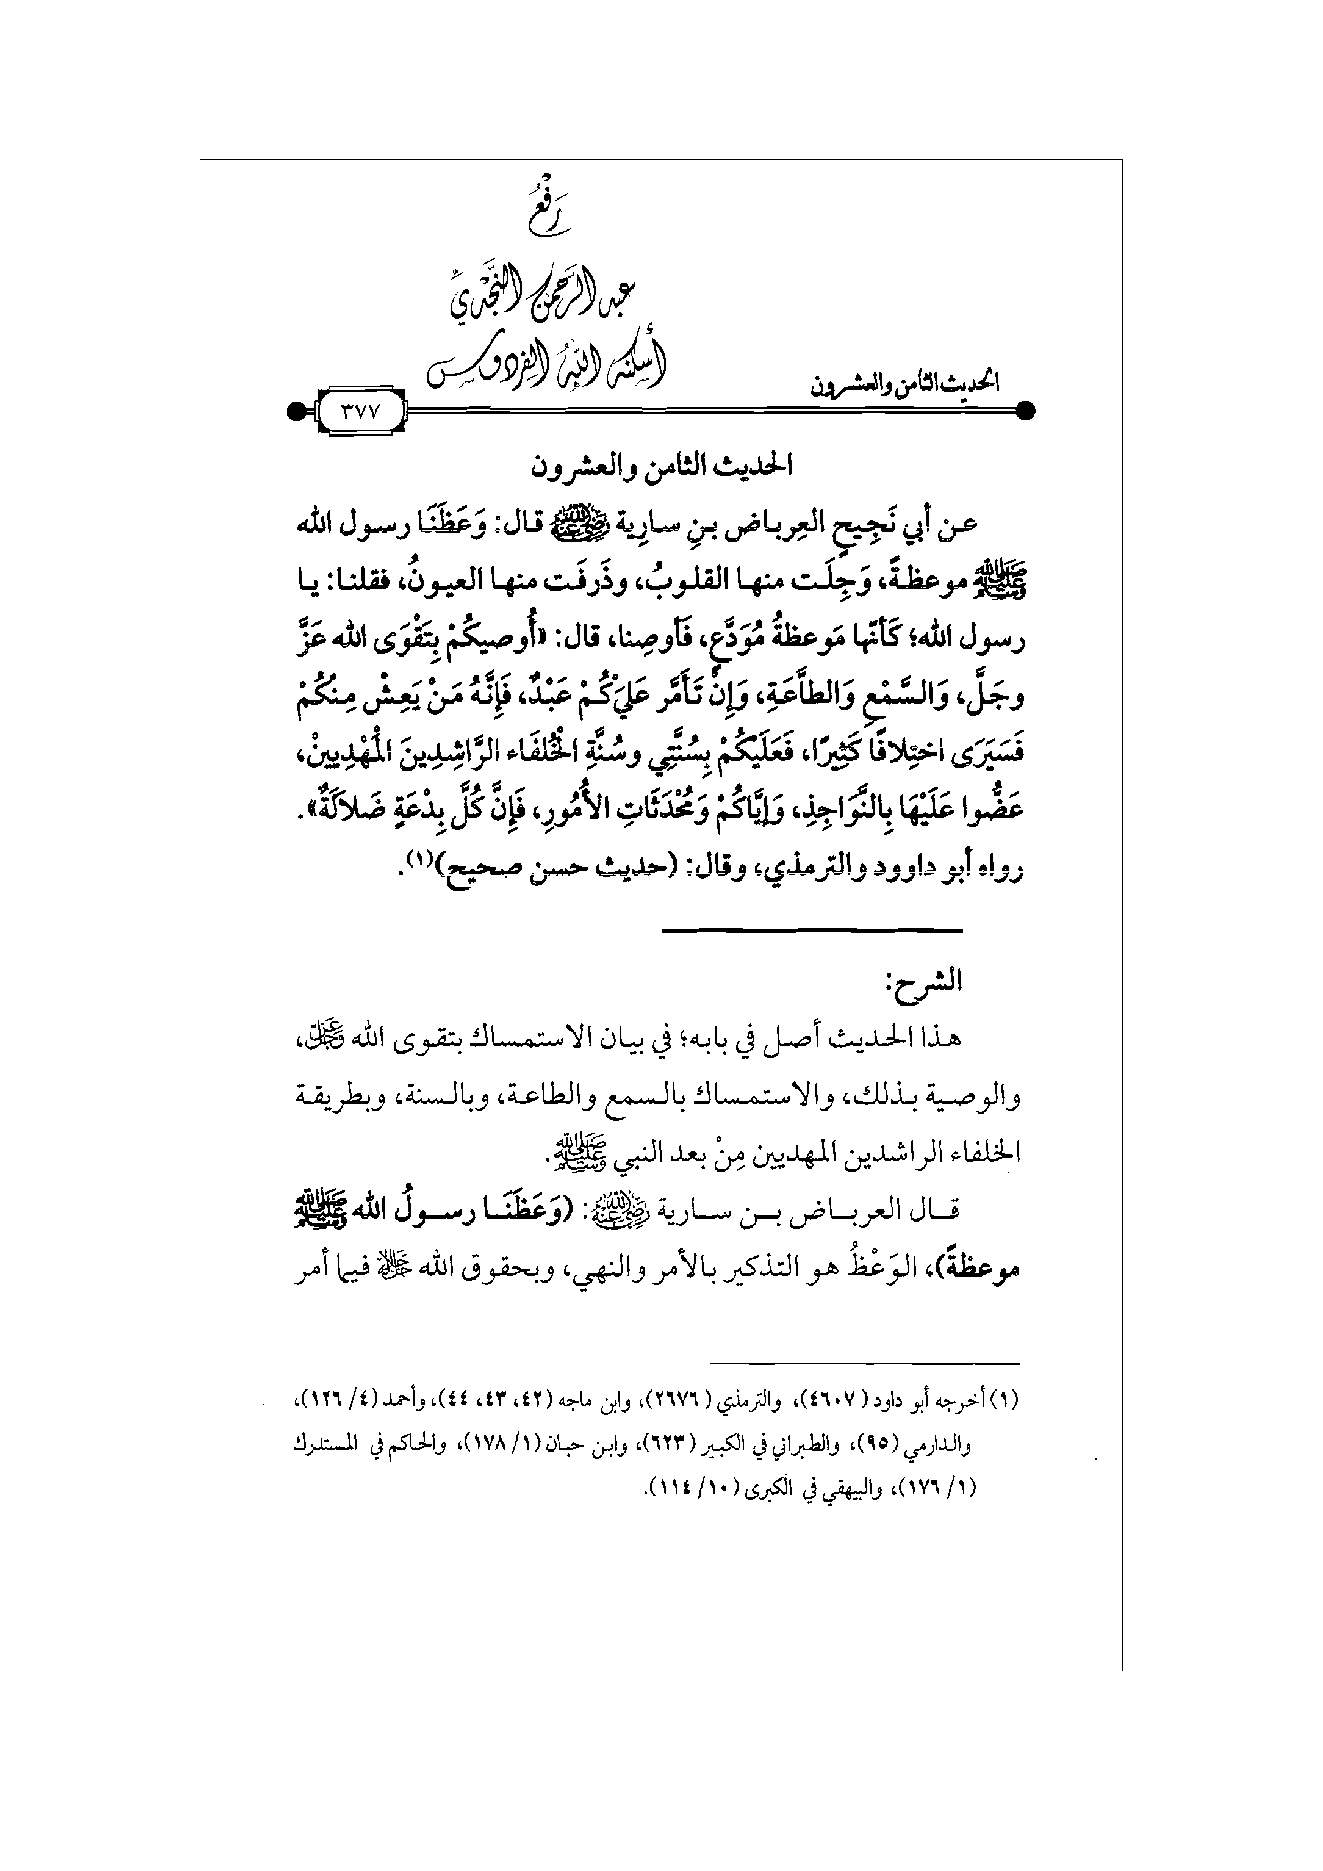 رَفْعُ
عبد الرحمن النجدي
أسكنه الله الفردوس
الحديث الثامن والعشرون
٣٧٧
الحديث الثامن والعشرون
عن أبي نَجِيحٍ العِرباض بنِ سارِية ﵁ قال: وَعَظَنَا رسول الله
ﷺ موعظةً، وَجِلَت منها القلوبُ، وذَرفَت منها العيونُ، فقلنا: يا
رسول الله؛ كَأنَّها مَوعظةُ مُوَدَّعٍ، فَأوصِنا، قال: «أُوصيكُمْ بِتَقْوَى الله عَزَّ
وجَلَّ، وَالسَّمْعِ وَالطاَّعَةِ، وَإِنْ تَأَمَّر عَليَكُمْ عَبْدٌ، فَإِنَّهُ مَنْ يَعِشْ مِنْكُمْ
فَسَيَرَى اختِلافًا كَثِيرًا، فَعَلَيكُمْ بِسُنَّتِي وسُنَّةِ الْخُلفَاء الرَّاشِدِينَ الْمَهْدِيينْ،
عَضُّوا عَلَيْهَا بِالنَّوَاجِذِ، وَإيَّاكُمْ وَمُحْدَثَاتِ الأُمُورِ، فَإِنَّ كُلَّ بِدْعَةٍ ضَلالَةٌ».
رواه أبو داوود والترمذي، وقال: (حديث حسن صحيح)(١).
الشرح:
هذا الحديث أصل في بابه؛ في بيان الاستمساك بتقوى الله ﷿،
والوصية بذلك، والاستمساك بالسمع والطاعة، وبالسنة، وبطريقة
الخلفاء الراشدين المهديين مِنْ بعد النبي ﷺ.
قال العرباض بن سارية ﵁: (وَعَظَنَا رسولُ الله ﷺ
موعظةً)، الوَعْظُ هو التذكير بالأمر والنهي، وبحقوق الله ﷻ فيما أمر
(١) أخرجه أبو داود (٤٦٠٧)، والترمذي (٢٦٧٦)، وابن ماجه (٤٢، ٤٣، ٤٤)، وأحمد (٤/ ١٢٦)،
والدارمي (٩٥)، والطبراني في الكبير (٦٢٣)، وابن حبان (١/ ١٧٨)، والحاكم في المستدرك
(١/ ١٧٦)، والبيهقي في الكبرى (١٠/ ١١٤).